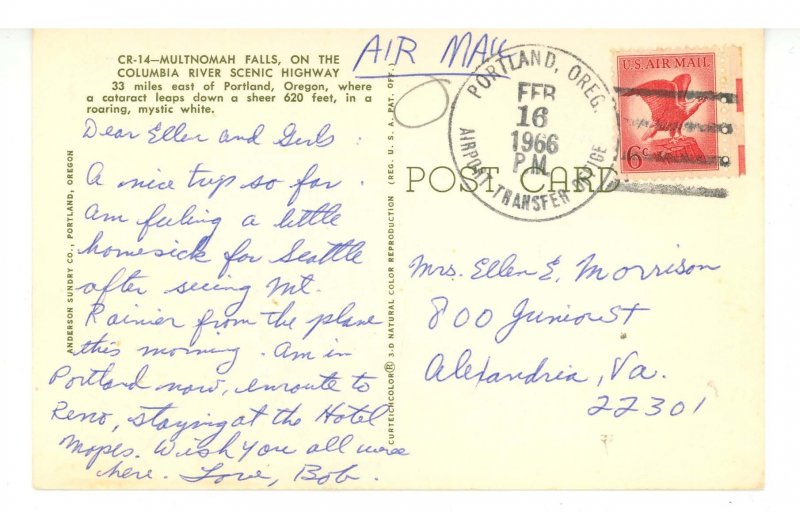 CR-14—MULTNOMAH FALLS, ON THE
COLUMBIA RIVER SCENIC HIGHWAY
33 miles east of Portland, Oregon, where
a cataract leaps down a sheer 620 feet, in a
roaring, mystic white.
AIR MAIL
Dear Ellen and Girls:
A nice trip so far.
Am feeling a little
homesick for Seattle
after seeing Mt.
Rainier from the plane
this morning. Am in
Portland now, enroute to
Reno, staying at the Hotel
Mapes. Wish you all were
here. Love, Bob.
ANDERSON SUNDRY CO., PORTLAND, OREGON
CURTEICHCOLOR® 3-D NATURAL COLOR REPRODUCTION (REG. U. S. A. PAT. OFF.)
POST CARD
PORTLAND, OREG.
FEB
16
1966
P.M.
AIRPORT TRANSFER OFFICE
U.S. AIR MAIL
6c
Mrs. Ellen E. Morrison
800 Junior St
Alexandria, Va.
22301